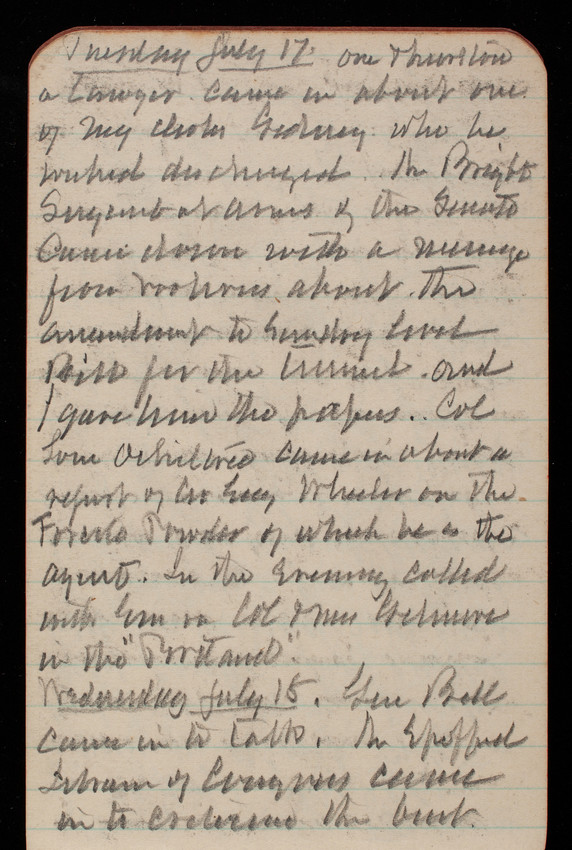 Tuesday July 17. one Thurston
a Lawyer came in about one
of my clerks Gedney who he
wished discharged. Mr Bright
Sergeant at arms of the Senate
Came down with a message
from Voorhees about the
amendment to Sundry Civil
Bill for the tunnel. and
I gave him the papers.. Col
Tom Ochiltree came in about a
report of Wheeler on the
Forcite Powder of which he is the
agent. In the Evening called
with Em on Col & Mrs
in the "Portland".
Wednesday July 18. Gen Bell
came in to talk. Mr Spofford
Librarn of Congress came
in to the bust.